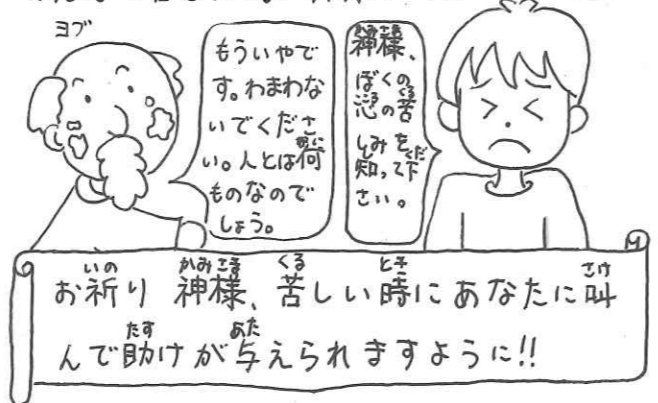 ヨブ
もういやで
す。わまわな
いでくださ
い。人とは何
ものなので
しょう。
神様、
ぼくの
心の苦
しみを
知って下
さい。
お祈り 神様、苦しい時にあなたに叫
んで助けが与えられますように!!